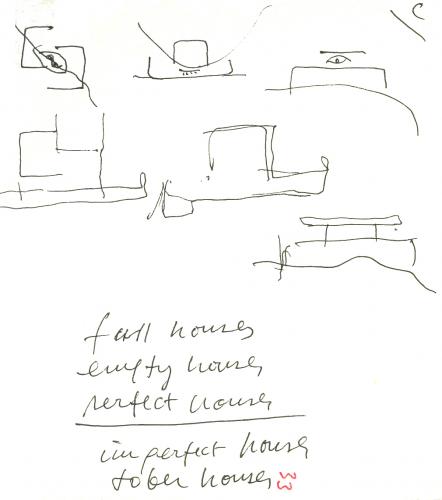 full houses
empty houses
perfect houses
imperfect houses
sober houses